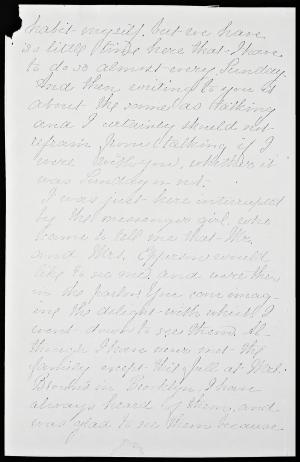 habit myself, but we have
so little time here that I have
to do so almost every Sunday.
And then writing to you is
about the same as talking
and I certainly should not
refrain from talking if I
were with you, whether it
was Sunday or not.
I was just here interrupted
by the messenger girl who
came to tell me that Mr.
and Mrs. would
like to see me and were then
in the parlor. You can imag-
ine the delight with which I
went down to see them. Al-
though I have never met the
family except this fall at Mrs.
in Brooklyn, I have
always heard of them, and
was glad to see them because